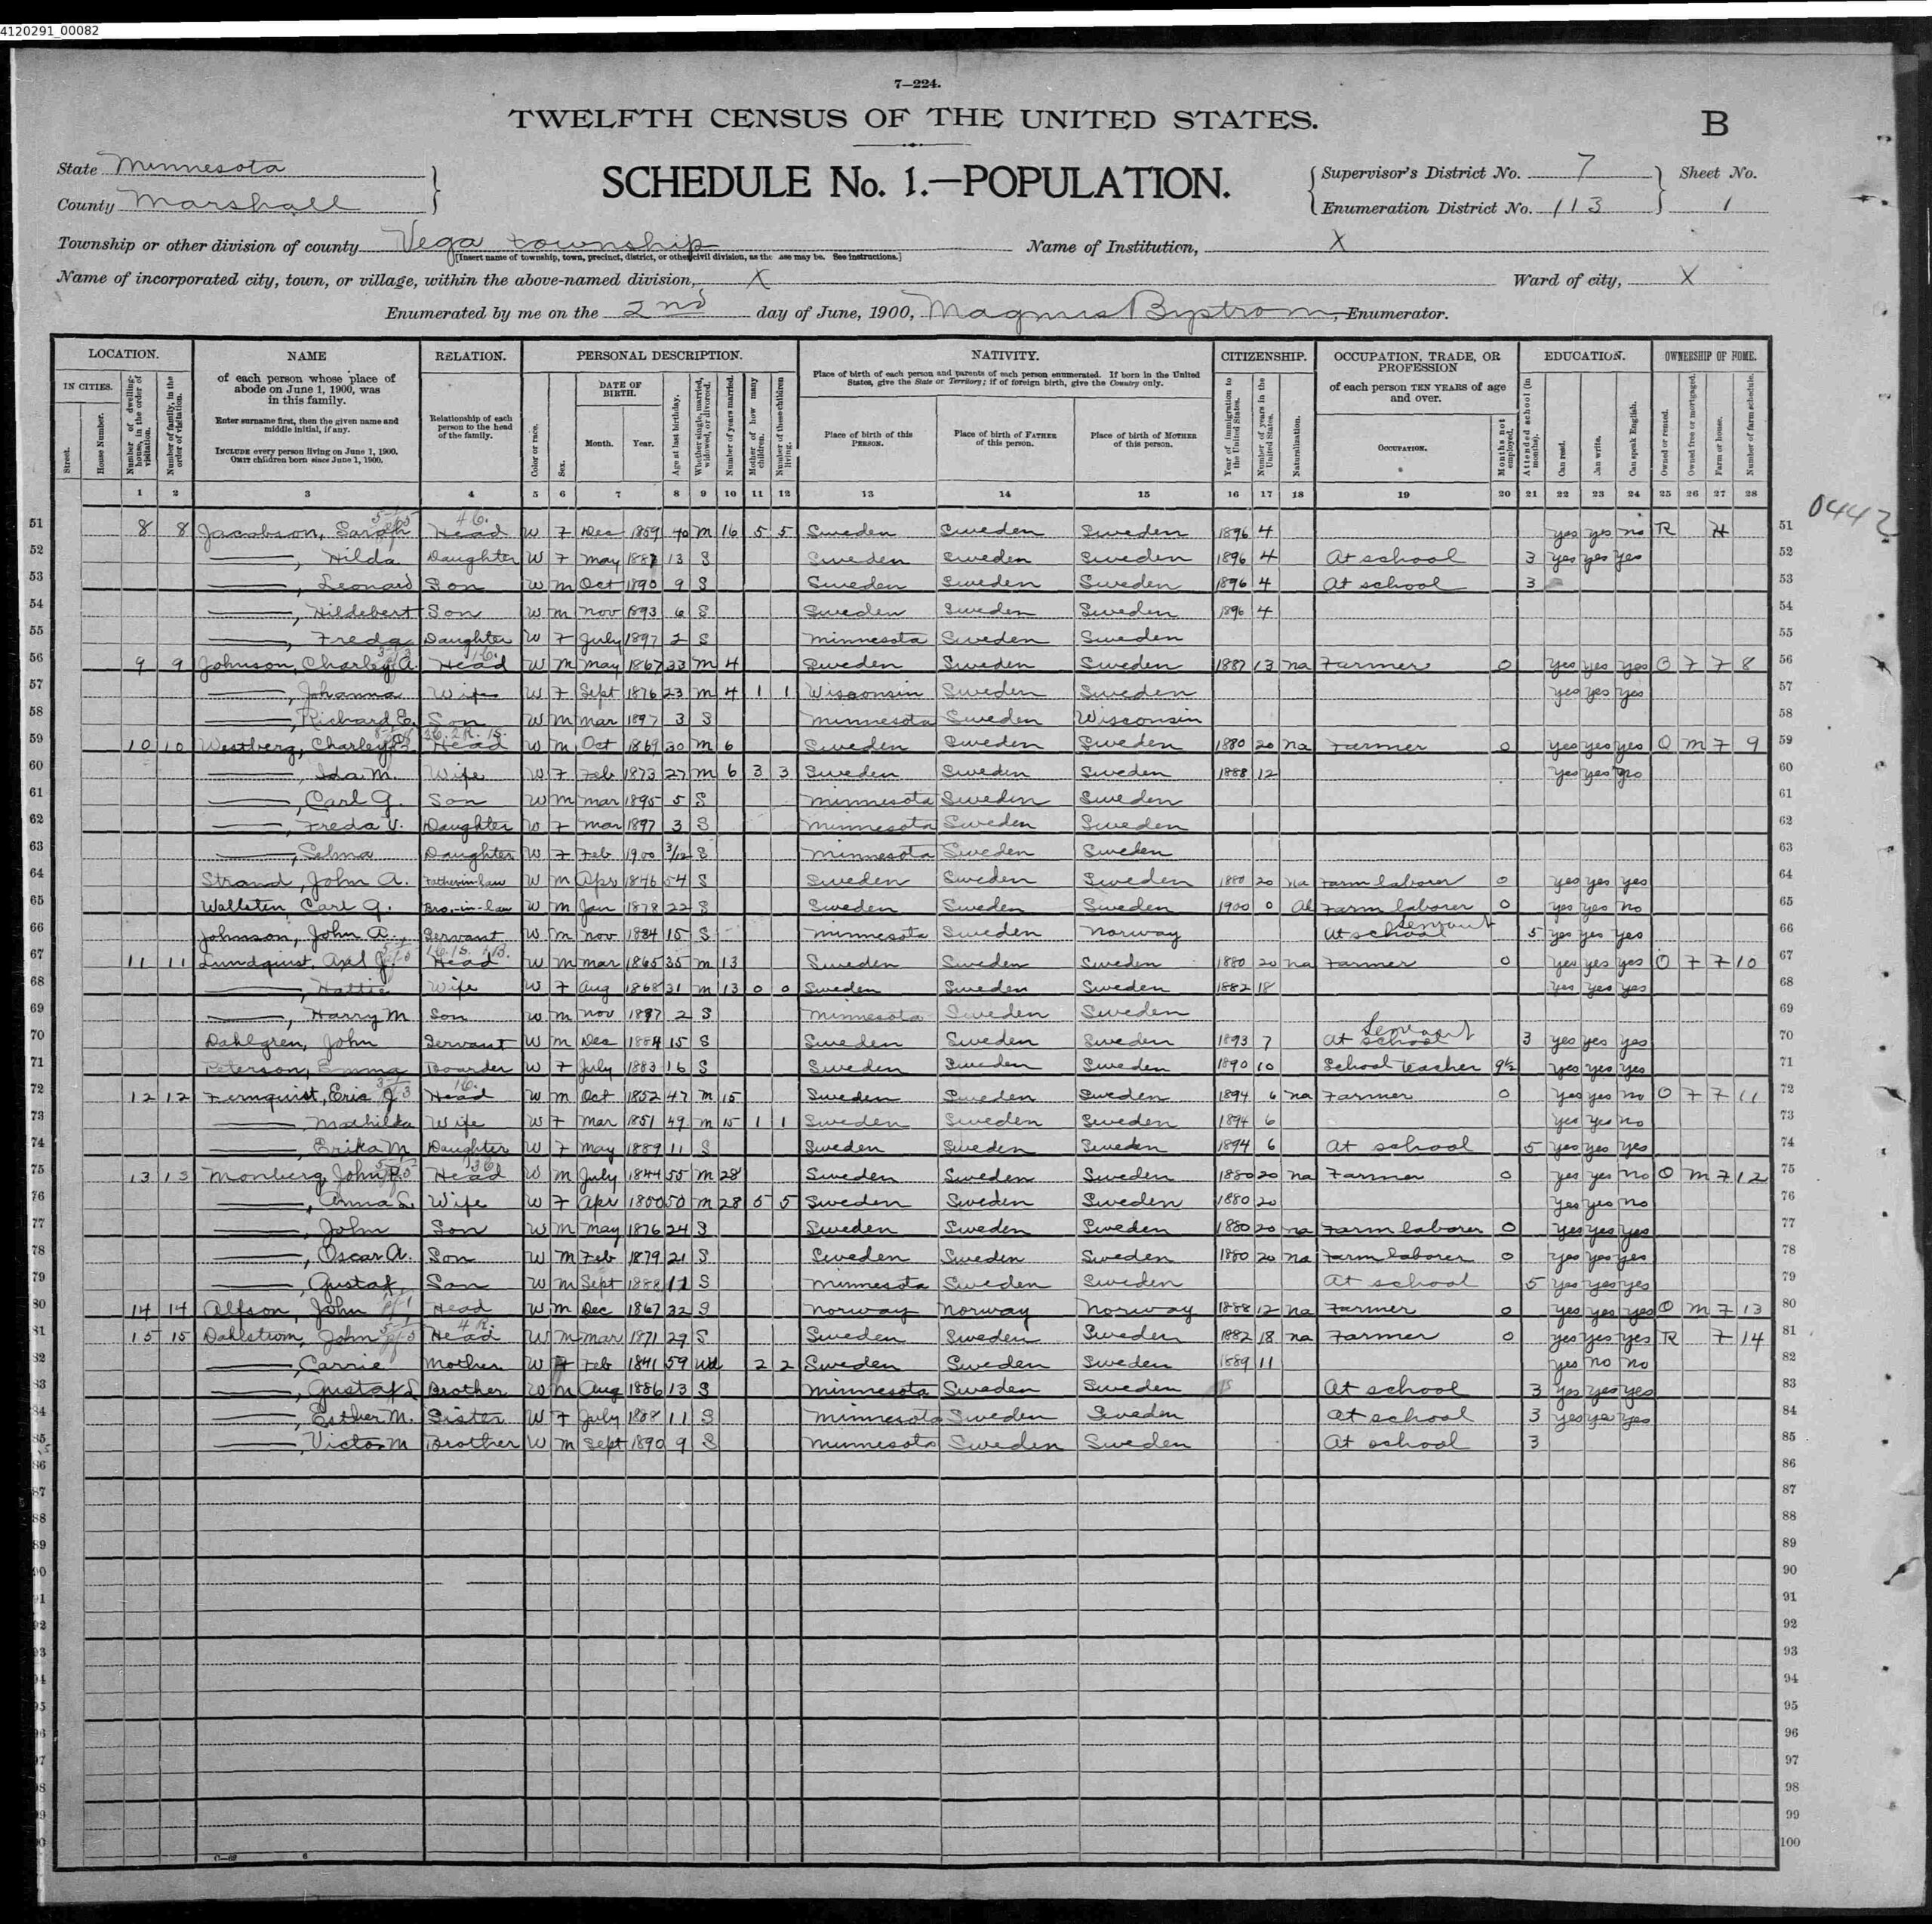 4120291_00082
7—224.
TWELFTH CENSUS OF THE UNITED STATES.
B
State Minnesota
County Marshall
SCHEDULE No. 1.—POPULATION.
Supervisor's District No. 7
Enumeration District No. 113
Sheet No.
1
Township or other division of county Vega township
[Insert name of township, town, precinct, district, or other civil division, as the case may be. See instructions.]
Name of Institution, X
Name of incorporated city, town, or village, within the above-named division, X
Ward of city, X
Enumerated by me on the 2nd day of June, 1900, Magnus Bystrom, Enumerator.
LOCATION. NAME RELATION. PERSONAL DESCRIPTION. NATIVITY. CITIZENSHIP. OCCUPATION, TRADE, OR PROFESSION EDUCATION. OWNERSHIP OF HOME.
IN CITIES. Street. House Number. Number of dwelling-house, in the order of visitation. Number of family, in the order of visitation.
of each person whose place of abode on June 1, 1900, was in this family.
Enter surname first, then the given name and middle initial, if any.
INCLUDE every person living on June 1, 1900. OMIT children born since June 1, 1900.
Relationship of each person to the head of the family.
Color or race. Sex. DATE OF BIRTH. Month. Year. Age at last birthday. Whether single, married, widowed, or divorced. Number of years married. Mother of how many children. Number of these children living.
Place of birth of each person and parents of each person enumerated. If born in the United States, give the State or Territory; if of foreign birth, give the Country only.
Place of birth of this PERSON. Place of birth of FATHER of this person. Place of birth of MOTHER of this person.
Year of immigration to the United States. Number of years in the United States. Naturalization.
of each person TEN YEARS of age and over.
OCCUPATION. Months not employed.
Attended school (in months). Can read. Can write. Can speak English.
Owned or rented. Owned free or mortgaged. Farm or house. Number of farm schedule.
1 2 3 4 5 6 7 8 9 10 11 12 13 14 15 16 17 18 19 20 21 22 23 24 25 26 27 28
0442
51 8 8 Jacobson, Sarah Head W F Dec 1859 40 m 16 5 5 Sweden Sweden Sweden 1896 4 yes yes no R H 51
52 ——, Hilda Daughter W F May 1887 13 S Sweden Sweden Sweden 1896 4 At school 3 yes yes yes 52
53 ——, Leonard Son W m Oct 1890 9 S Sweden Sweden Sweden 1896 4 At school 3 53
54 ——, Hildebert Son W m nov 1893 6 S Sweden Sweden Sweden 1896 4 54
55 ——, Freda Daughter W F July 1897 2 S Minnesota Sweden Sweden 55
56 9 9 Johnson, Charley A. Head W m May 1867 33 m 4 Sweden Sweden Sweden 1887 13 na Farmer 0 yes yes yes O F F 8 56
57 ——, Johanna Wife W F Sept 1876 23 m 4 1 1 Wisconsin Sweden Sweden yes yes yes 57
58 ——, Richard E. Son W m mar 1897 3 S Minnesota Sweden Wisconsin 58
59 10 10 Westberg, Charley Head W m Oct 1869 30 m 6 Sweden Sweden Sweden 1880 20 na Farmer 0 yes yes yes O m F 9 59
60 ——, Ida M. Wife W F Feb 1873 27 m 6 3 3 Sweden Sweden Sweden 1888 12 yes yes no 60
61 ——, Carl G. Son W m mar 1895 5 S Minnesota Sweden Sweden 61
62 ——, Freda V. Daughter W F mar 1897 3 S Minnesota Sweden Sweden 62
63 ——, Selma Daughter W F Feb 1900 3/12 S Minnesota Sweden Sweden 63
64 Strand, John A. Father-in-law W m Apr 1846 54 S Sweden Sweden Sweden 1880 20 na Farm laborer 0 yes yes yes 64
65 Wallsten, Carl G. Bro.-in-law W m Jan 1878 22 S Sweden Sweden Sweden 1900 0 Al Farm laborer 0 yes yes no 65
66 Johnson, John A. Servant W m nov 1884 15 S Minnesota Sweden Norway At school servant 5 yes yes yes 66
67 11 11 Lundquist, Axl J. Head W m mar 1865 35 m 13 Sweden Sweden Sweden 1880 20 na Farmer 0 yes yes yes O F F 10 67
68 ——, Hattie Wife W F Aug 1868 31 m 13 0 0 Sweden Sweden Sweden 1882 18 yes yes yes 68
69 ——, Harry M Son W m nov 1897 2 S Minnesota Sweden Sweden 69
70 Dahlgren, John Servant W m Dec 1884 15 S Sweden Sweden Sweden 1893 7 At school Servant 3 yes yes yes 70
71 Peterson, Emma Boarder W F July 1883 16 S Sweden Sweden Sweden 1890 10 School teacher 9½ yes yes yes 71
72 12 12 Fernquist, Eric J. Head W m Oct 1852 47 m 15 Sweden Sweden Sweden 1894 6 na Farmer 0 yes yes no O F F 11 72
73 ——, Mathilda Wife W F Mar 1851 49 m 15 1 1 Sweden Sweden Sweden 1894 6 yes yes no 73
74 ——, Erika M. Daughter W F May 1889 11 S Sweden Sweden Sweden 1894 6 At school 5 yes yes yes 74
75 13 13 Monberg, John Head W m July 1844 55 m 28 Sweden Sweden Sweden 1880 20 na Farmer 0 yes yes no O m F 12 75
76 ——, Anna L. Wife W F Apr 1850 50 m 28 5 5 Sweden Sweden Sweden 1880 20 yes yes no 76
77 ——, John Son W m May 1876 24 S Sweden Sweden Sweden 1880 20 na Farm laborer 0 yes yes yes 77
78 ——, Oscar A. Son W m Feb 1879 21 S Sweden Sweden Sweden 1880 20 na Farm laborer 0 yes yes yes 78
79 ——, Gustaf Son W m Sept 1888 11 S Minnesota Sweden Sweden At school 5 yes yes yes 79
80 14 14 Alfson, John Head W m Dec 1867 32 S Norway Norway Norway 1888 12 na Farmer 0 yes yes yes O m F 13 80
81 15 15 Dahlstrom, John Head W m mar 1871 29 S Sweden Sweden Sweden 1882 18 na Farmer 0 yes yes yes R F 14 81
82 ——, Carrie Mother W F Feb 1841 59 Wd 2 2 Sweden Sweden Sweden 1889 11 yes no no 82
83 ——, Gustaf L Brother W m Aug 1886 13 S Minnesota Sweden Sweden At school 3 yes yes yes 83
84 ——, Esther M. Sister W F July 1888 11 S Minnesota Sweden Sweden At school 3 yes yes yes 84
85 ——, Victor M Brother W m Sept 1890 9 S Minnesota Sweden Sweden At school 3 85
86 86
87 87
88 88
89 89
90 90
91 91
92 92
93 93
94 94
95 95
96 96
97 97
98 98
99 99
100 100